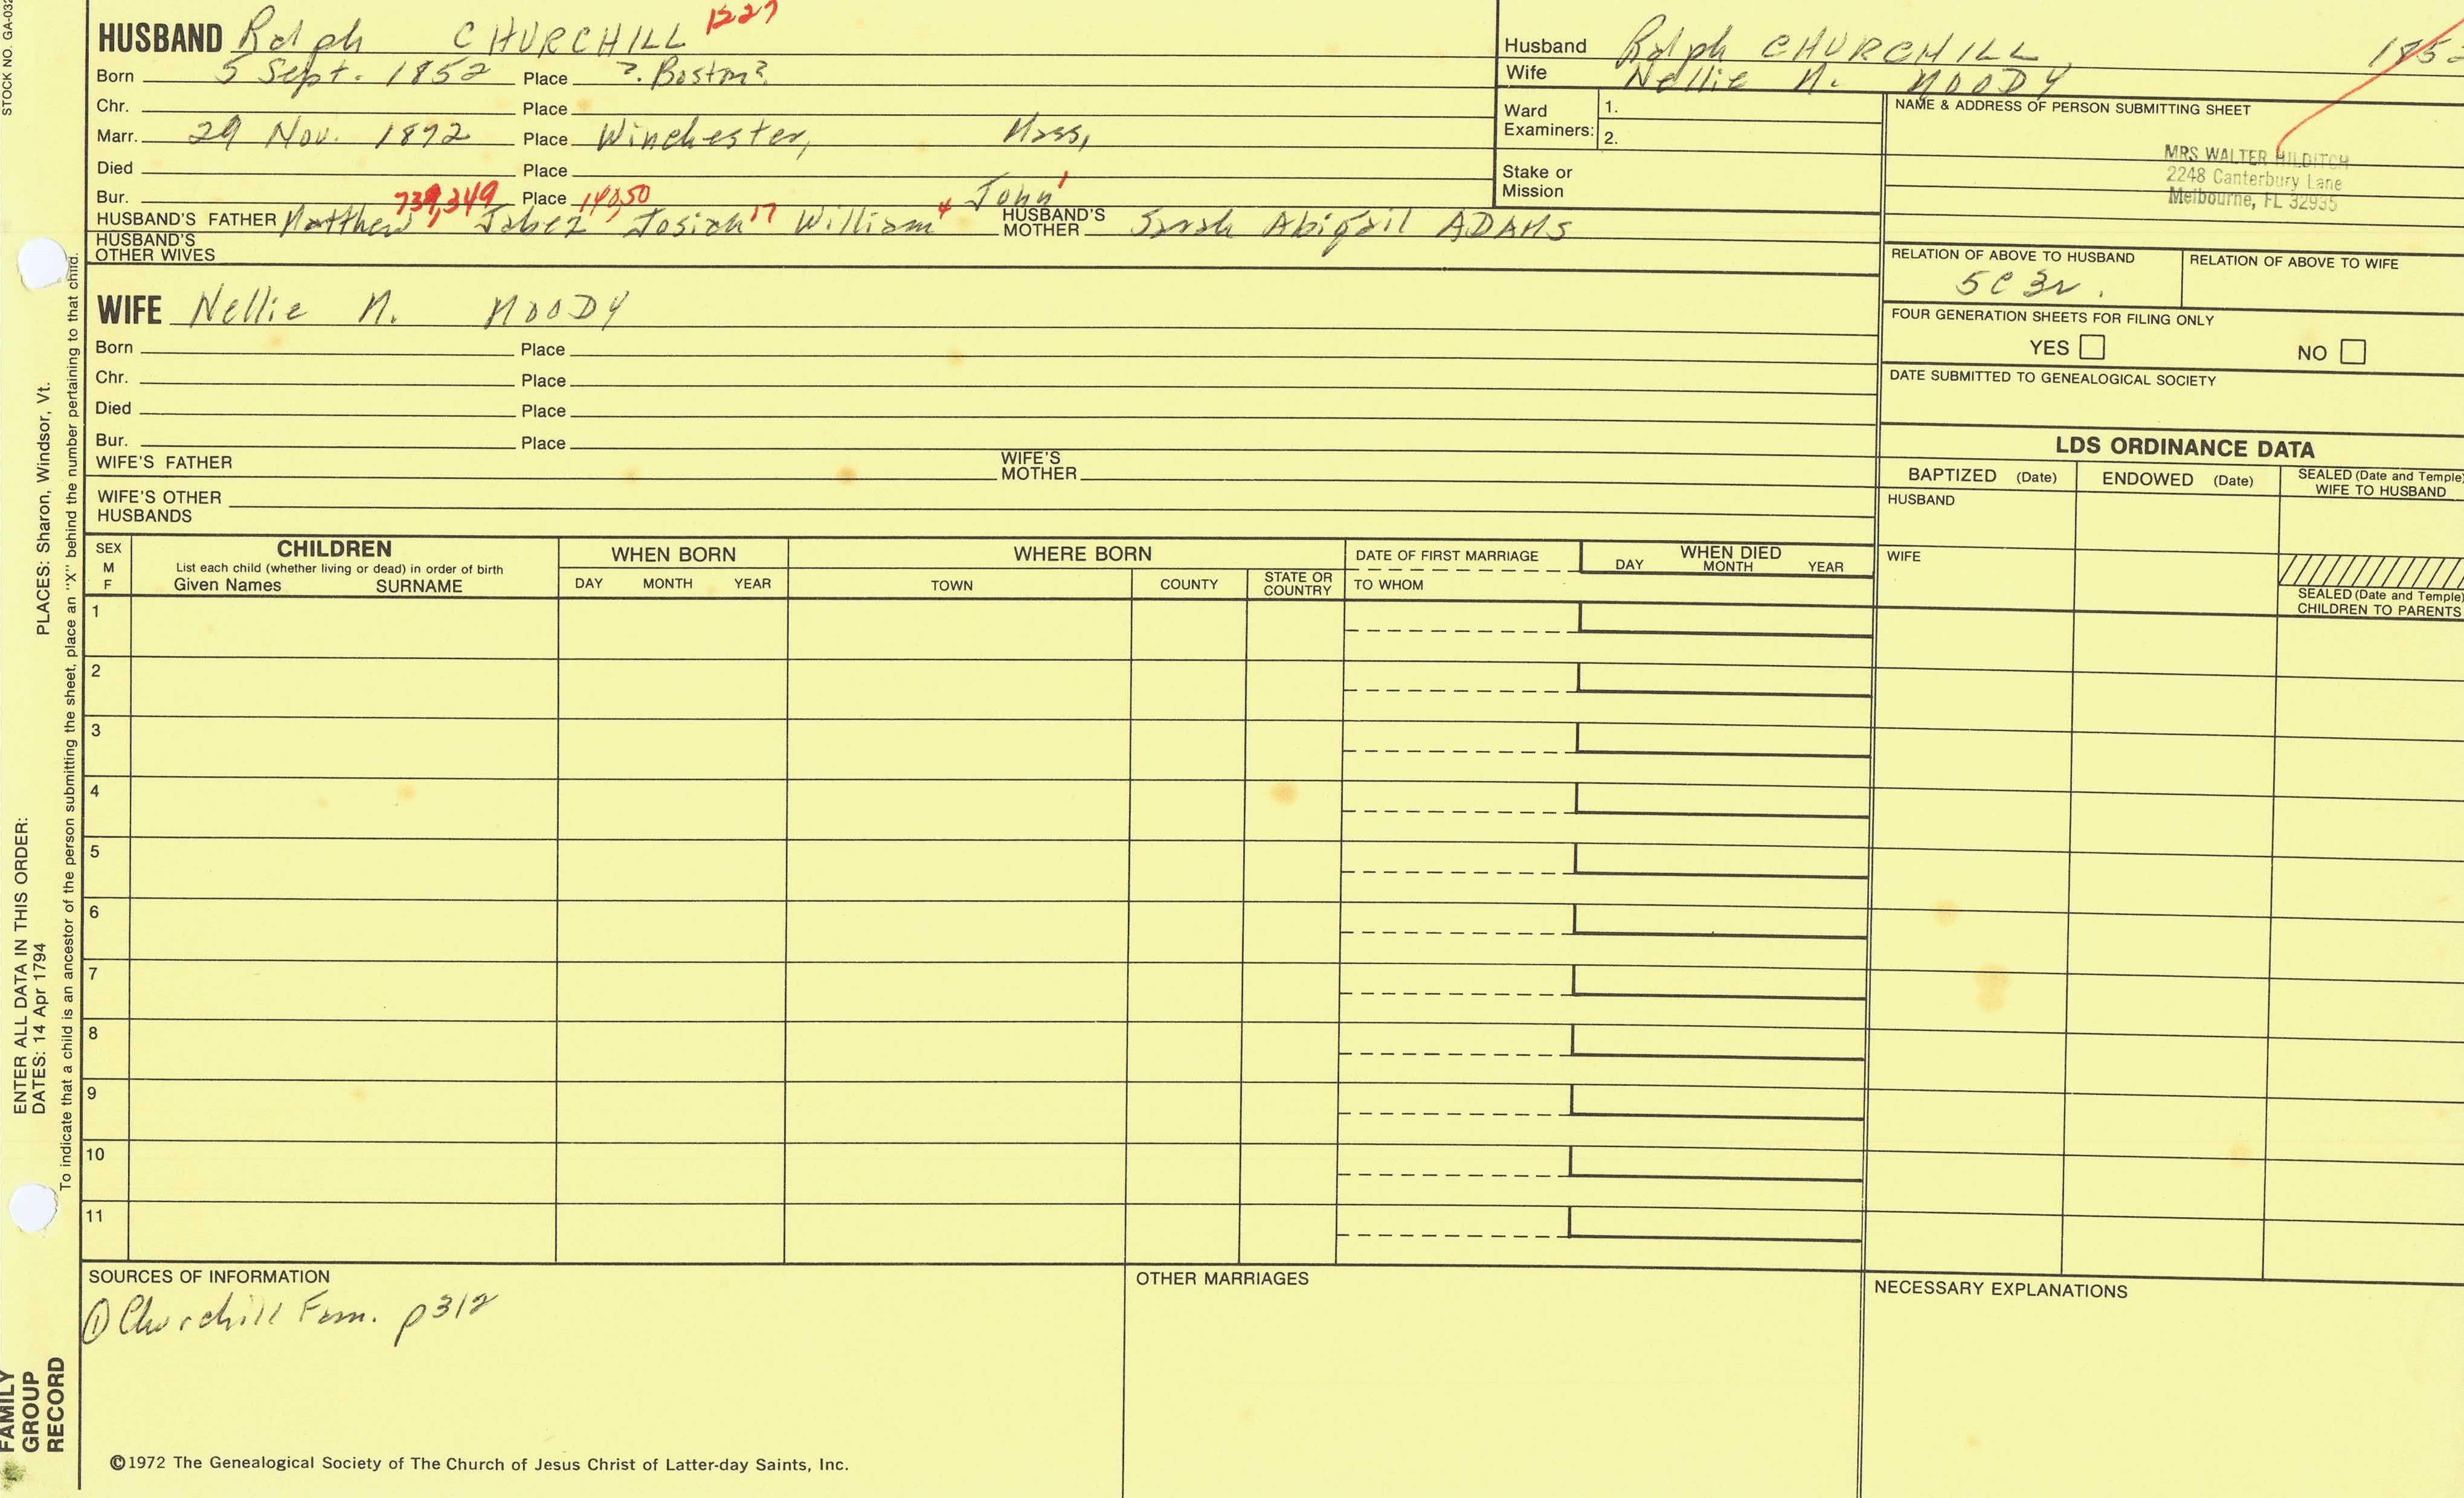 STOCK NO. GA-032
HUSBAND Ralph CHURCHILL 1227
Born 5 Sept. 1852 Place ?. Boston?
Chr. Place
Marr. 29 Nov. 1872 Place Winchester, Mass,
Died Place
Bur. 739,349 Place 140,50
HUSBAND'S FATHER Matthew, Jabez, Josiah 17 William 4 John 1 HUSBAND'S MOTHER Sarah Abigail ADAMS
HUSBAND'S OTHER WIVES
Husband Ralph CHURCHILL, 1852
Wife Nellie M. MOODY
Ward Examiners: 1.
2.
Stake or Mission
NAME & ADDRESS OF PERSON SUBMITTING SHEET
MRS WALTER HILDITCH
2248 Canterbury Lane
Melbourne, FL 32935
RELATION OF ABOVE TO HUSBAND RELATION OF ABOVE TO WIFE
5C 3r.
FOUR GENERATION SHEETS FOR FILING ONLY
YES NO
DATE SUBMITTED TO GENEALOGICAL SOCIETY
WIFE Nellie M. MOODY
Born Place
Chr. Place
Died Place
Bur. Place
WIFE'S FATHER WIFE'S MOTHER
WIFE'S OTHER HUSBANDS
LDS ORDINANCE DATA
BAPTIZED (Date) ENDOWED (Date) SEALED (Date and Temple) WIFE TO HUSBAND
HUSBAND
WIFE
SEALED (Date and Temple) CHILDREN TO PARENTS
SEX M F
CHILDREN
List each child (whether living or dead) in order of birth
Given Names SURNAME
WHEN BORN
DAY MONTH YEAR
WHERE BORN
TOWN COUNTY STATE OR COUNTRY
DATE OF FIRST MARRIAGE
TO WHOM
WHEN DIED
DAY MONTH YEAR
1
2
3
4
5
6
7
8
9
10
11
SOURCES OF INFORMATION
① Churchill Fam. p312
OTHER MARRIAGES
NECESSARY EXPLANATIONS
©1972 The Genealogical Society of The Church of Jesus Christ of Latter-day Saints, Inc.
FAMILY GROUP RECORD
ENTER ALL DATA IN THIS ORDER:
DATES: 14 Apr 1794 PLACES: Sharon, Windsor, Vt.
To indicate that a child is an ancestor of the person submitting the sheet, place an "X" behind the number pertaining to that child.